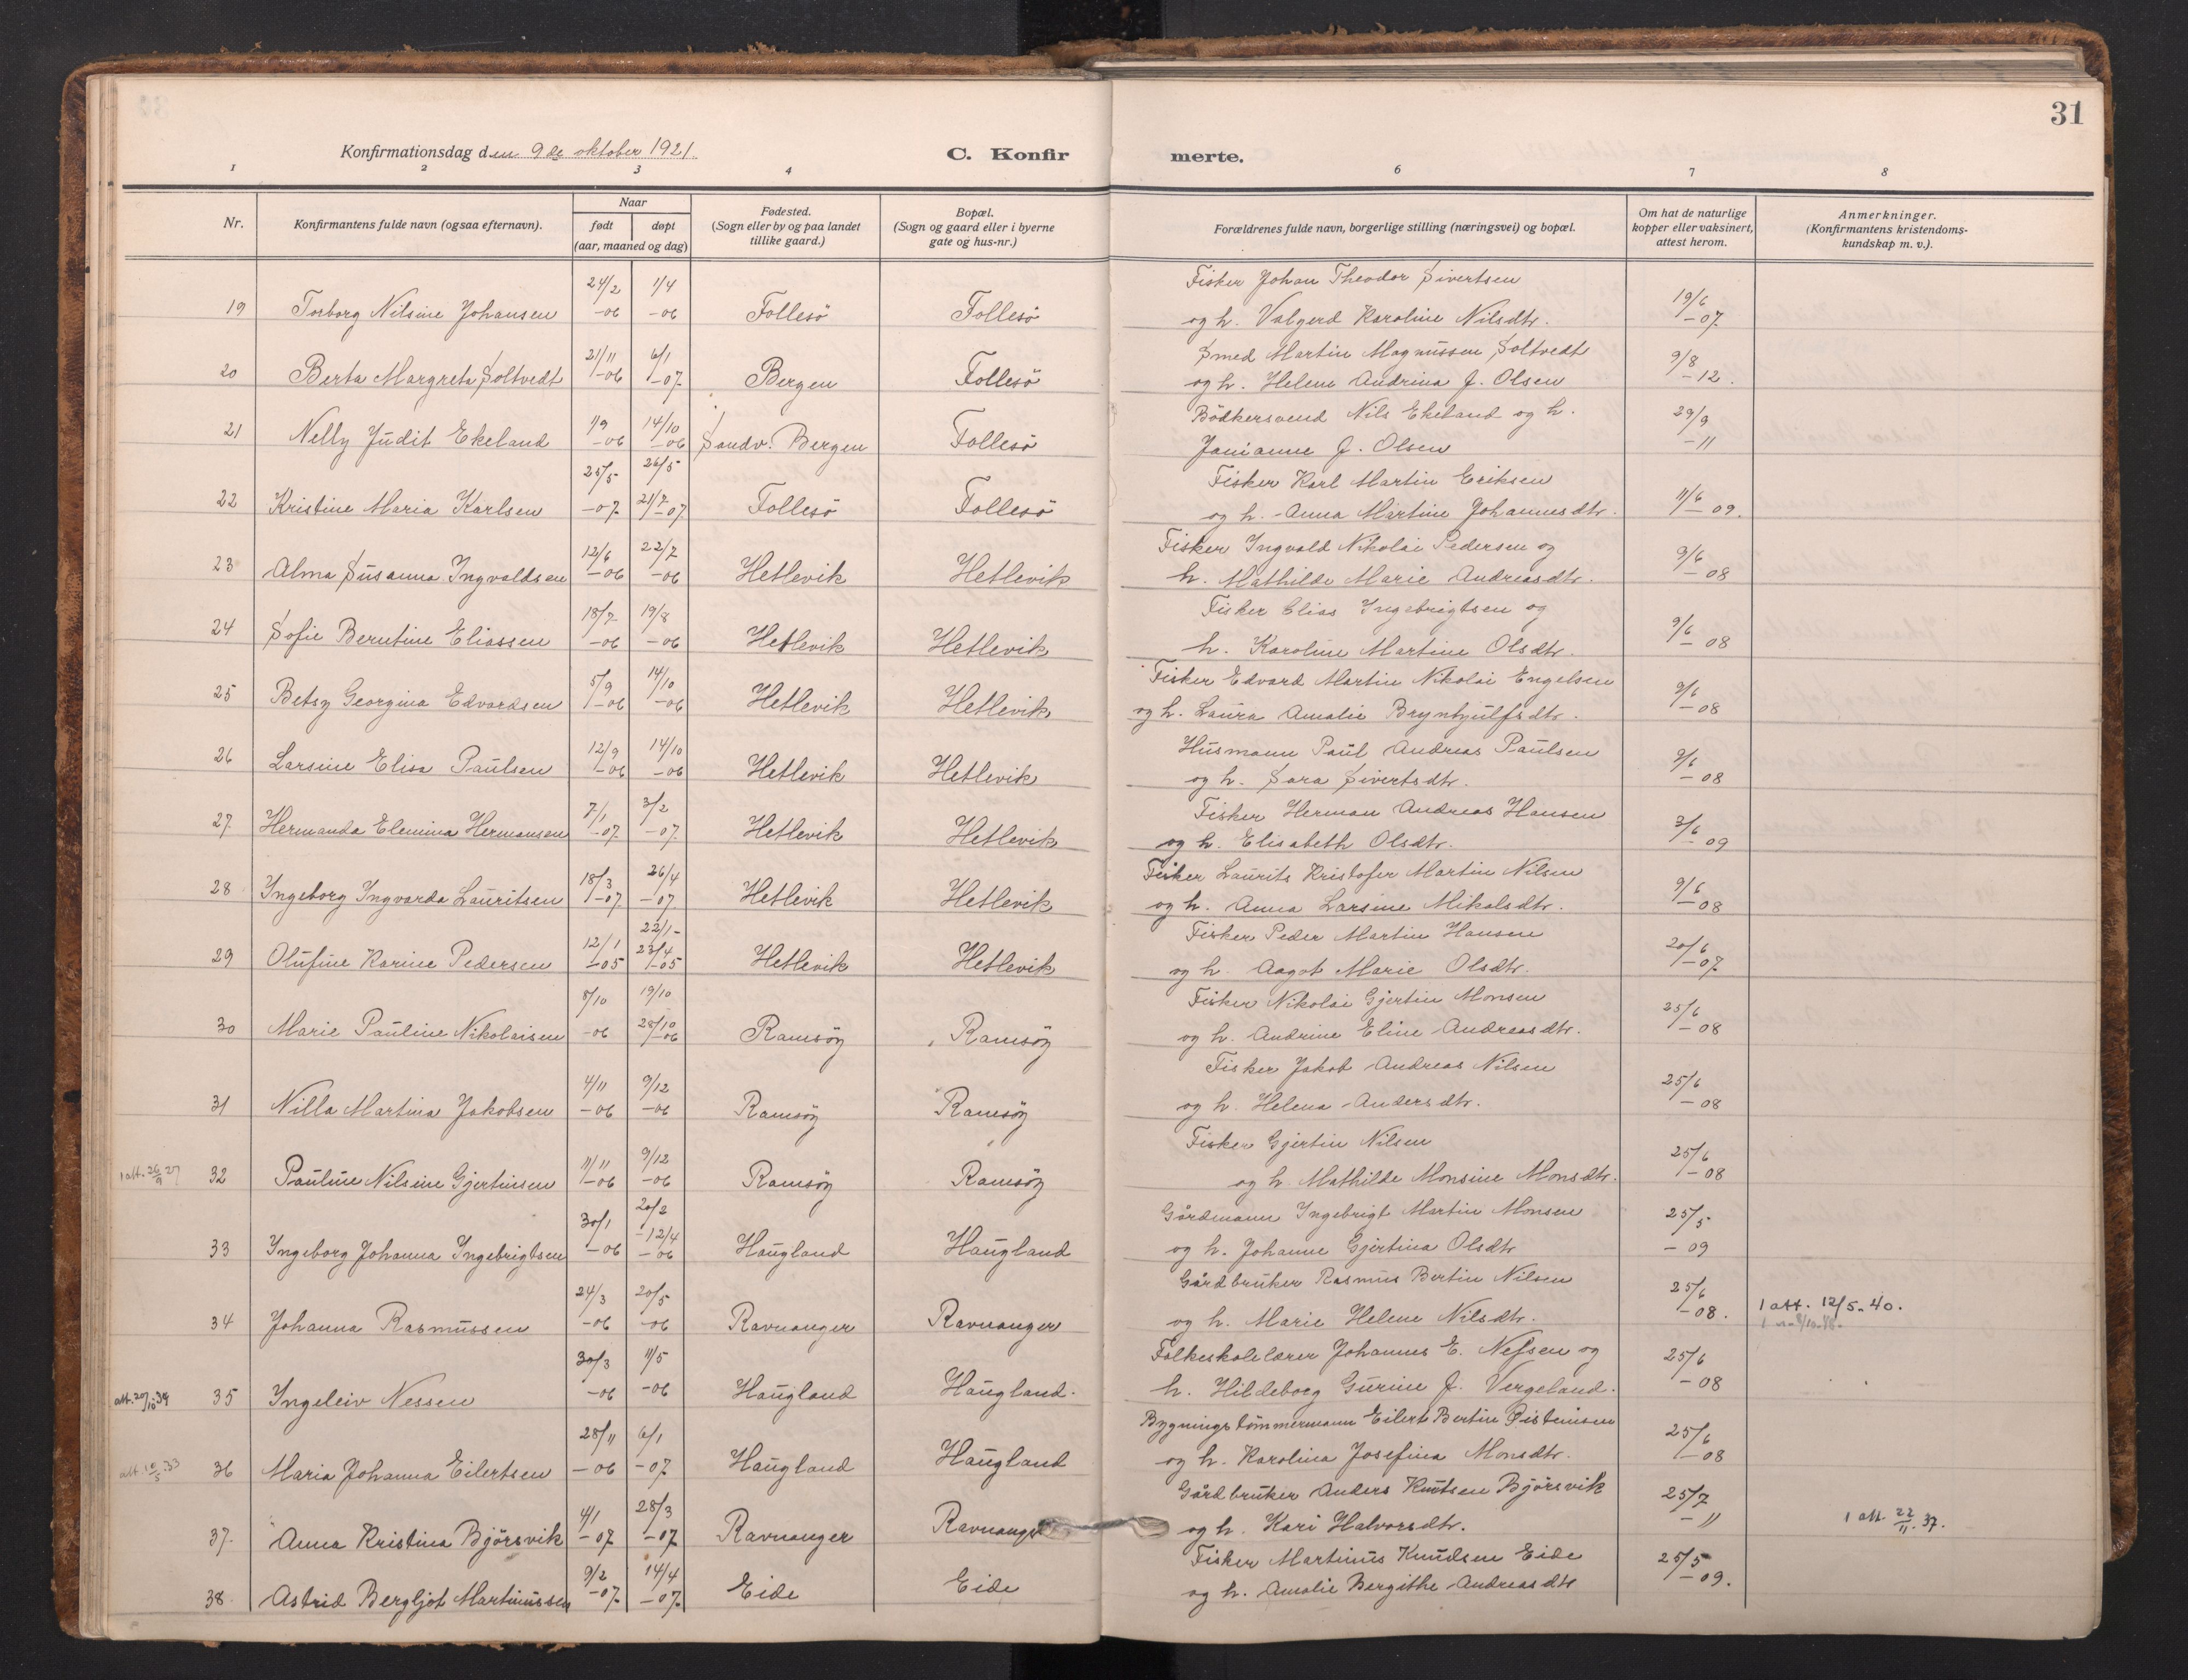 31
Konfirmationsdag den 9de oktober 1921.
C. Konfir
merte.
1 2 3 4 6 7 8
Nr.
Konfirmantens fulde navn (ogsaa efternavn).
Naar
født døpt
(aar, maaned og dag)
Fødested.
(Sogn eller by og paa landet
tillike gaard.)
Bopæl.
(Sogn og gaard eller i byerne
gate og hus-nr.)
Forældrenes fulde navn, borgerlige stilling (næringsvei) og bopæl.
Om hat de naturlige
kopper eller vaksinert,
attest herom.
Anmerkninger.
(Konfirmantens kristendoms-
kundskap m. v.).
24/2 1/4 Fisker Johan Theodor Sivertsen
19 Torborg Nilsine Johansen -06 -06 Follesö Follesö og h. Valgerd Karoline Nilsdtr. 19/6 -07
21/11 6/1 Smed Martin Magnussen Soltvedt
20 Berta Margreta Soltvedt -06 -07 Bergen Follesö og h. Helene Andrina J. Olsen 9/8 -12.
1/9 14/10 Bödkersvend Nils Ekeland og h.
21 Nelly Judit Ekeland -06 -06 Sandv. Bergen Follesö Janianne J. Olsen 29/9 -11
25/5 26/5 Fisker Karl Martin Eriksen
22 Kristine Maria Karlsen -07 21/7-07 Follesö Follesö og h. Anna Martine Johannesdtr. 11/6-09.
12/6 22/7 Fisker Ingvald Nikolai Pedersen og
23 Alma Susanna Ingvaldsen -06 -06 Hetlevik Hetlevik h. Mathilde Marie Andreasdtr. 9/6-08
18/7 19/8 Fisker Elias Ingebrigtsen og
24 Sofie Berntine Eliassen -06 -06 Hetlevik Hetlevik h. Karoline Martine Olsdtr. 9/6-08
5/9 14/10 Fisker Edvard Martin Nikolai Engelsen
25 Betsy Georgina Edvardsen -06 -06 Hetlevik Hetlevik og h. Laura Amalie Brynhjulfsdtr. 9/6-08
12/9 14/10 Husmann Paul Andreas Paulsen
26 Larsine Elisa Paulsen -06 -06 Hetlevik Hetlevik og h. Sara Sivertsdtr. 9/6-08
7/1 3/2 Fisker Herman Andreas Hansen
27 Hermanda Elemina Hermansen -07 -07 Hetlevik Hetlevik og h. Elisabeth Olsdtr. 3/6-09
18/3 26/4 Fisker Laurits Kristofer Martin Nilsen
28 Ingeborg Ingvarda Lauritsen -07 -07 Hetlevik Hetlevik og h. Anna Larsine Mikalsdtr. 9/6-08
12/1 22/1- Fisker Peder Martin Hansen
29 Olufine Karine Pedersen -05 23/4-05 Hetlevik Hetlevik og h. Aagot Marie Olsdtr. 20/6-07
8/10 19/10 Fisker Nikolai Gjertin Monsen
30 Marie Pauline Nikolaisen -06 28/10-06 Ramsöy Ramsöy og h. Andrine Eline Andreasdtr. 25/6-08
4/11 9/12 Fisker Jakob Andreas Nilsen
31 Nilla Martina Jakobsen -06 -06 Ramsöy Ramsöy og h. Helena Andersdtr. 25/6-08
11/11 9/12 Fisker Gjertin Nilsen
1 att. 26/9 27 32 Pauline Nilsine Gjertinsen -06 -06 Ramsöy Ramsöy og h. Mathilde Monsine Monsdtr. 25/6-08
30/1 20/2 Gårdmann Ingebrigt Martin Monsen
33 Ingeborg Johanna Ingebrigtsen -06 -12/4-06 Haugland Haugland og h. Johanne Gjertina Olsdtr 25/5-09
24/3 20/5 Gårdbruker Rasmus Bertin Nilsen
34 Johanna Rasmussen -06 -06 Ravnanger Ravnanger og h. Marie Helene Nilsdtr. 25/6-08. 1 att. 12/5-40.
30/3 11/5 Folkeskolelærer Johannes E. Nessen og
att. 20/10-34 35 Ingeleiv Nessen -06 -06 Haugland Haugland. h. Hildeborg Gurine J. Vergeland. 25/6-08
28/11 6/1 Bygningstömmermann Eilert Bertin Östensen
36 Maria Johanna Eilertsen -06 -07 Haugland Haugland og h. Karolina Josefina Monsdtr. 25/6-08
4/1 28/3 Gårdbruker Anders Knutsen Björsvik
37. Anna Kristina Björsvik -07 -07 Ravnanger Ravnanger og h. Kari Halvorsdtr. 25/7-11 1 att. 22/11. 37.
9/2 14/4 Fisker Martinus Knudsen Eide
38. Astrid Bergljot Martinussen -07 -07 Eide Eide og h. Amalie Bergithe Andreasdtr 25/5-09.